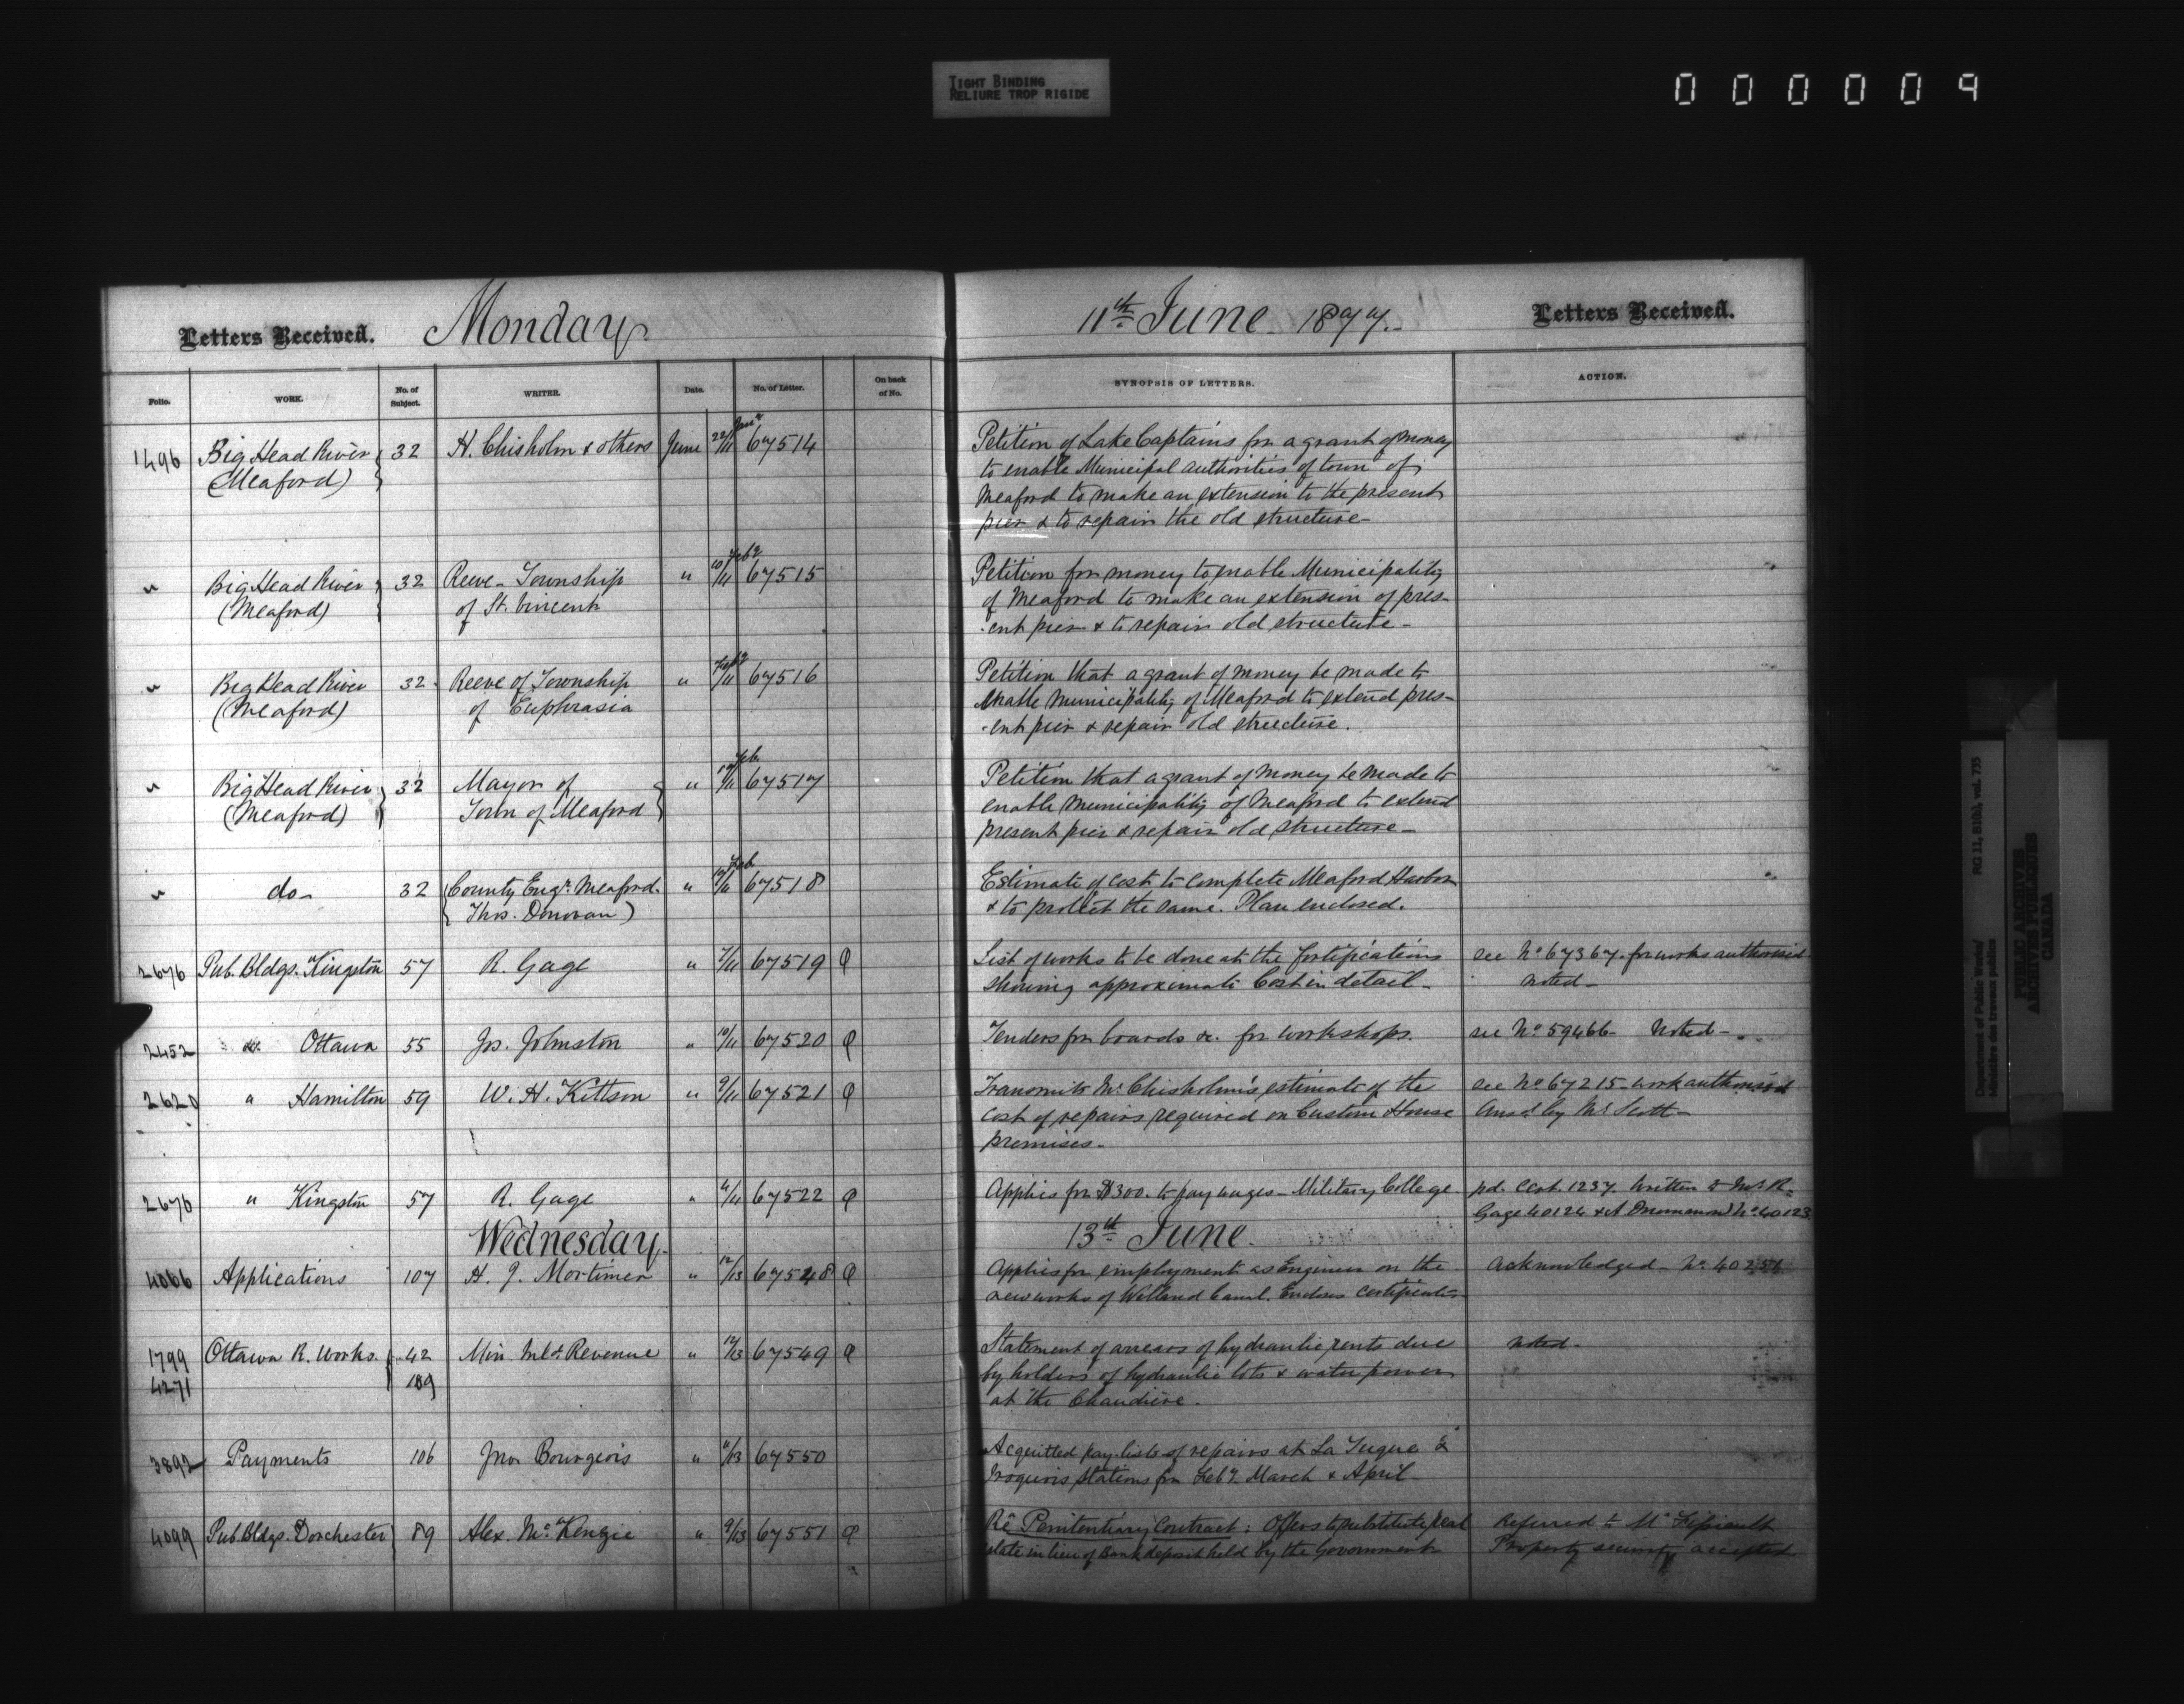 TIGHT BINDING
RELIURE TROP RIGIDE
000009
Letters Received. Monday 11th June 1877. Letters Received.
Folio. WORK. No. of Subject. WRITER. Date. No. of Letter. On back of No. SYNOPSIS OF LETTERS. ACTION.
1496 Big Head River 32 H. Chisholm & others June 22/11 67514 Petition of Lake Captains for a grant of money
(Meaford) to enable Municipal authorities of town of
Meaford to make an extension to the present
pier & to repair the old structure-
" Big Head River 32 Reeve - Township " 10/11 67515 Petition for money to enable Municipality
(Meaford) of St. Vincent of Meaford to make an extension of pres-
-ent pier & to repair old structure-
" Big Head River 32 Reeve of Township " 67516 Petition that a grant of money be made to
(Meaford) of Euphrasia enable Municipality of Meaford to extend pres-
-ent pier & repair old structure.
" Big Head River 32 Mayor of " 67517 Petition that a grant of money be made to
(Meaford) Town of Meaford enable Municipality of Meaford to extend
present pier & repair old structure-
" do- 32 (County Engr. Meaford. " 67518 Estimate of cost to complete Meaford Harbor
Thos. Donovan) & to protect the same. Plan enclosed.
2676 Pub. Bldgs. Kingston 57 R. Gage " 7/11 67519 List of works to be done at the fortifications see No 67367. for works authorised
showing approximate Cost in detail- noted-
2452 do. Ottawa 55 Jos. Johnston " 10/11 67520 Tenders for boards &c. for workshops. see No 59466- Noted-
2620 " Hamilton 59 W. H. Kittson " 9/11 67521 Transmits Mr. Chisholm's estimate of the see No 67215- work authorised
cost of repairs required on Custom House Ansd. by Mr Scott-
premises-
2676 " Kingston 57 R. Gage " 67522 Applies for $300. to pay wages- Military College pd. Cert. 1237. Written to Mr R-
Gage 40124 & A Drummond No 40123
Wednesday 13th June.
4066 Applications 107 H. J. Mortimer " 12/13 67548 Applies for employment as Engineer on the Acknowledged- No
new works of Welland Canal. Encloses Certificates
1799 Ottawa R. Works. 42 Min Inld. Revenue " 12/13 67549 Statement of arrears of hydraulic rents due noted-
4271 189 by holders of hydraulic lots & water power
at the Chaudière.
3892 Payments 106 Jno. Bourgeois " 11/13 67550 Acquitted pay-lists of repairs at La Tuque &
Iroquois Stations for Feby. March & April-
4099 Pub. Bldgs. Dorchester 89 Alex. McKenzie " 9/13 67551 Re Penitentiary Contract: Offers to substitute real Referred to Mr
estate in lieu of Bank deposit held by the Government Property security accepted
Department of Public Works/
Ministère des travaux publics
RG 11, B1(b), vol. 735
PUBLIC ARCHIVES
ARCHIVES PUBLIQUES
CANADA